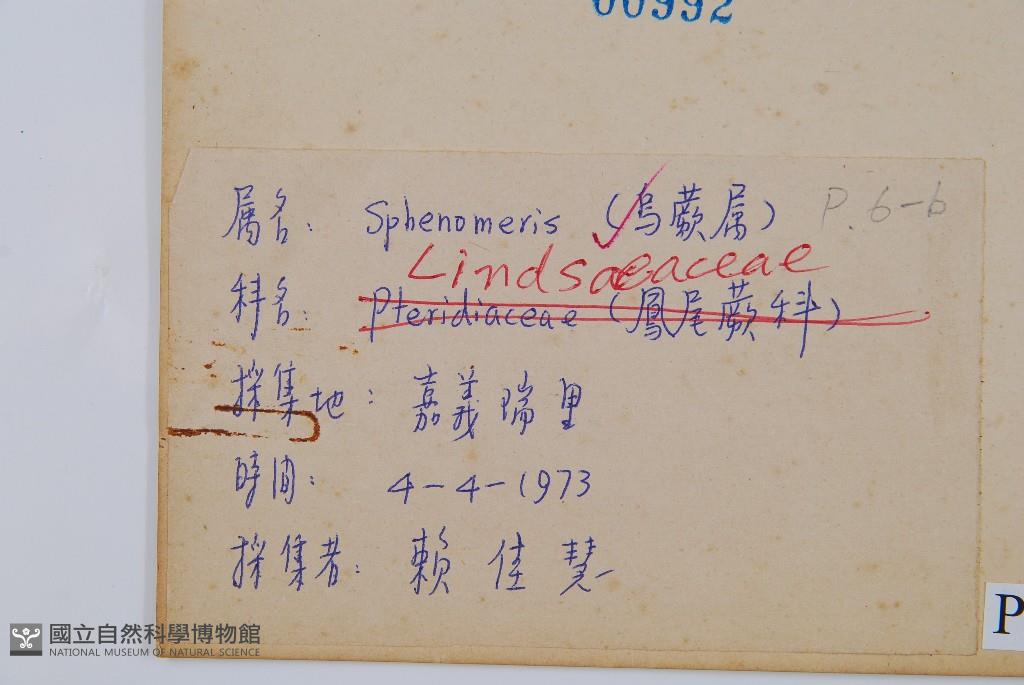 00992
属名: Sphenomeris (烏蕨属) P. 6-b
Lindsaeaceae
科名: Pteridiaceae (鳳尾蕨科)
採集地: 嘉義瑞里
時间: 4-4-1973
採集者: 賴佳慧
P
國立自然科學博物館
NATIONAL MUSEUM OF NATURAL SCIENCE